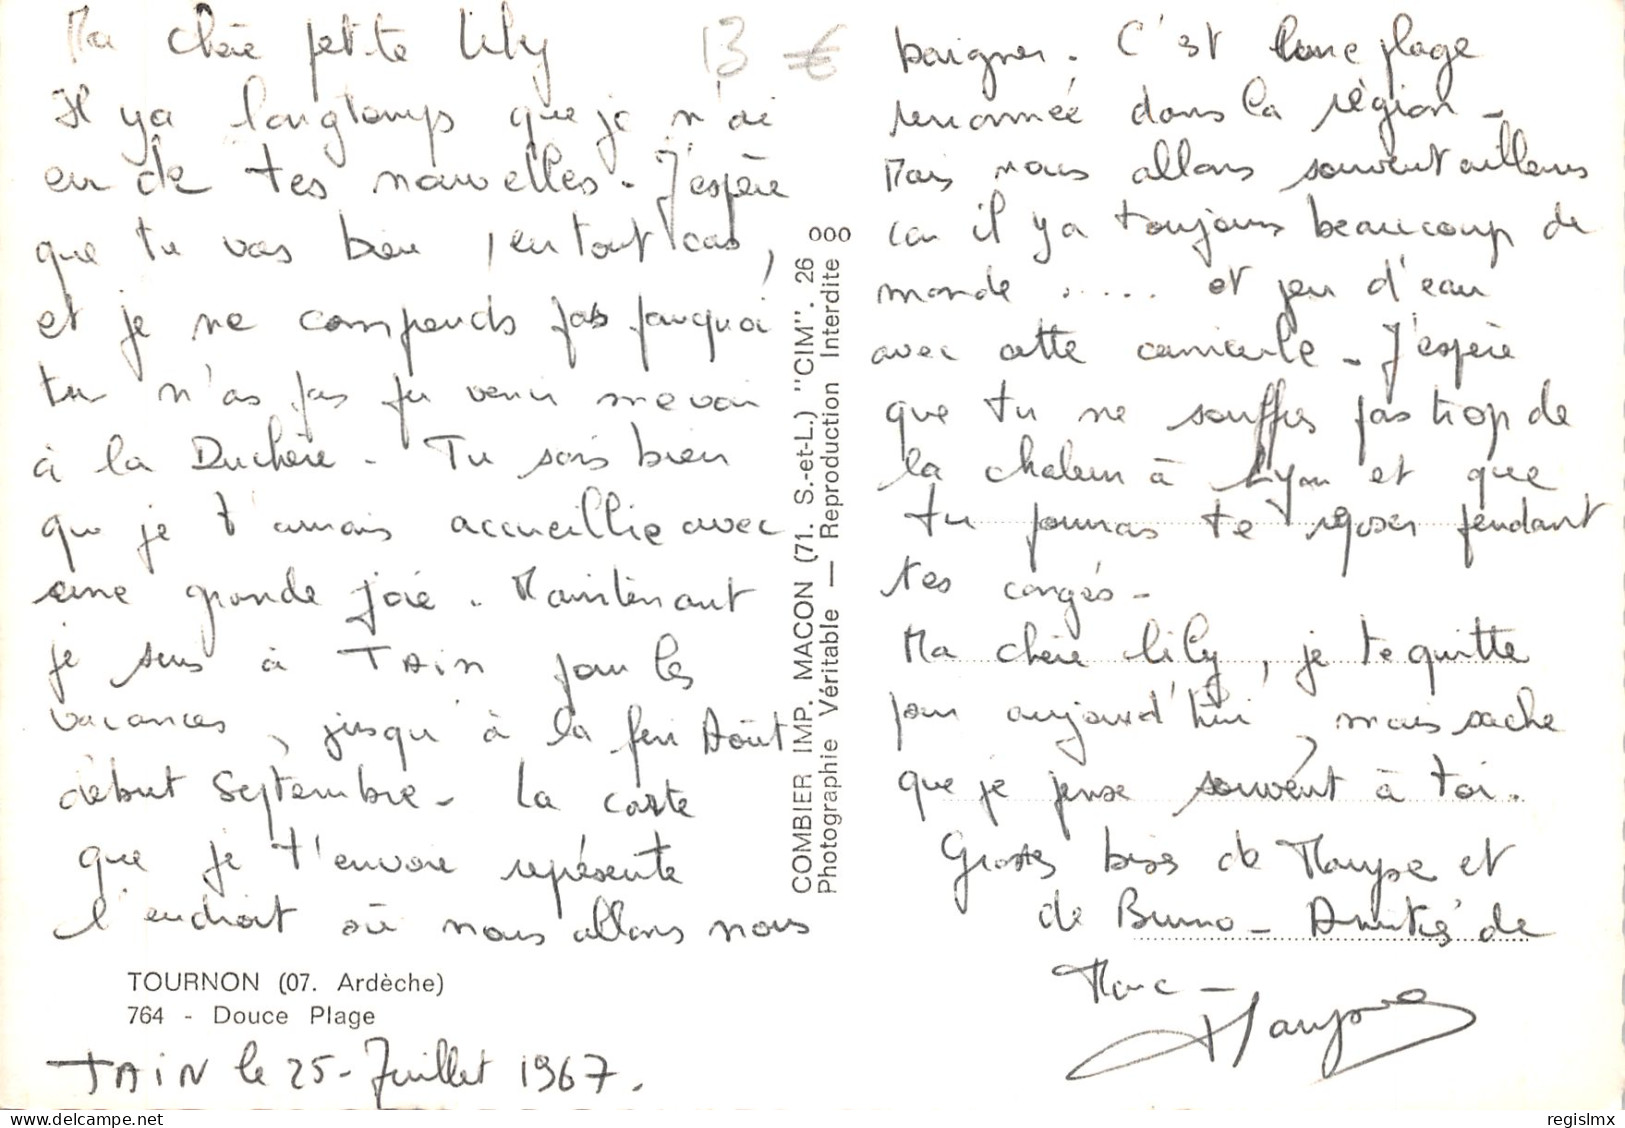 Ma chère petite Lily
13 €
Il y a longtemps que je n'ai
eu de tes nouvelles. J'espère
que tu vas bien, en tout cas,
et je ne comprends pas pourquoi
tu n'as pas pu venir me voir
à la Duchère. Tu sais bien
que je t'aurais accueillie avec
une grande joie. Maintenant
je suis à TAIN pour les
vacances, jusqu'à la fin Août
début Septembre. La carte
que je t'envoie représente
l'endroit où nous allons nous
TOURNON (07. Ardèche)
764 - Douce Plage
TAIN le 25 Juillet 1967.
COMBIER IMP. MACON (71. S.-et-L.) "CIM". 26 000
Photographie Véritable — Reproduction Interdite
baigner. C'est une plage
renommée dans la région -
Mais nous allons souvent ailleurs
car il y a toujours beaucoup de
monde ..... et peu d'eau
avec cette canicule - J'espère
que tu ne souffres pas trop de
la chaleur à Lyon et que
tu pourras te reposer pendant
tes congés -
Ma chère Lily, je te quitte
pour aujourd'hui, mais sache
que je pense souvent à toi.
Grosses bises de Maryse et
de Bruno - Amitiés de
Marc -
Maryse
regislmx